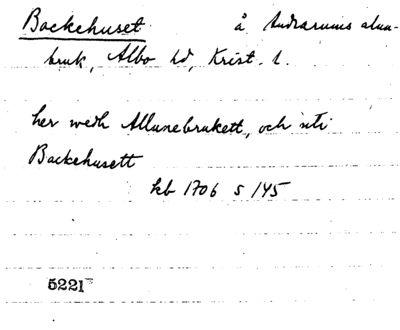 Backehuset å Andrarums alun-
bruk, Albo hd, Krist. l.
her wedh Allunebrukett, och uti
Backehusett
kb 1706 s 145
5221